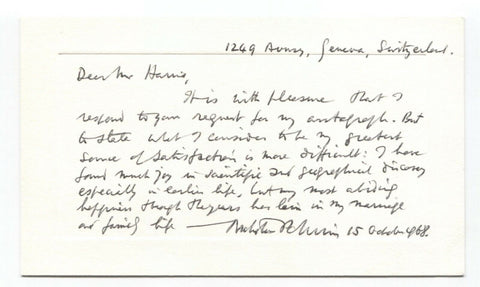 1249 Avusy, Geneva, Switzerland.
Dear Mr Harris,
It is with pleasure that I
respond to your request for my autograph. But
to state what I consider to be my greatest
source of satisfaction is more difficult: I have
found much joy in scientific and geographical discovery
especially in earlier life, but my most abiding
happiness through the years has lain in my marriage
and family life — 15 October 1968.